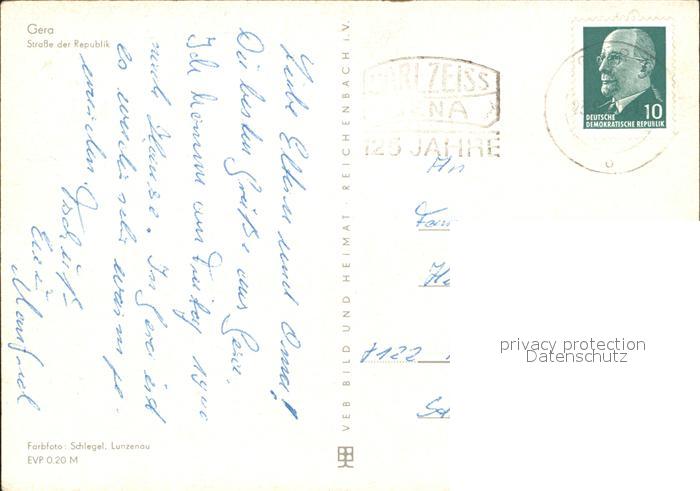 Gera
Straße der Republik
Liebe Eltern und Oma!
Die besten Grüße aus Gera.
Ich komme am Freitag 1900
nach Hause. In Gera ist
es wieder sehr warm ge-
worden.
Tschüß
Euer
Manfred
Farbfoto: Schlegel, Lunzenau
EVP 0.20 M
VEB BILD UND HEIMAT · REICHENBACH i. V.
CARL ZEISS
JENA
125 JAHRE
DEUTSCHE
DEMOKRATISCHE REPUBLIK
10
An
Fam
He
7122
privacy protection
Datenschutz